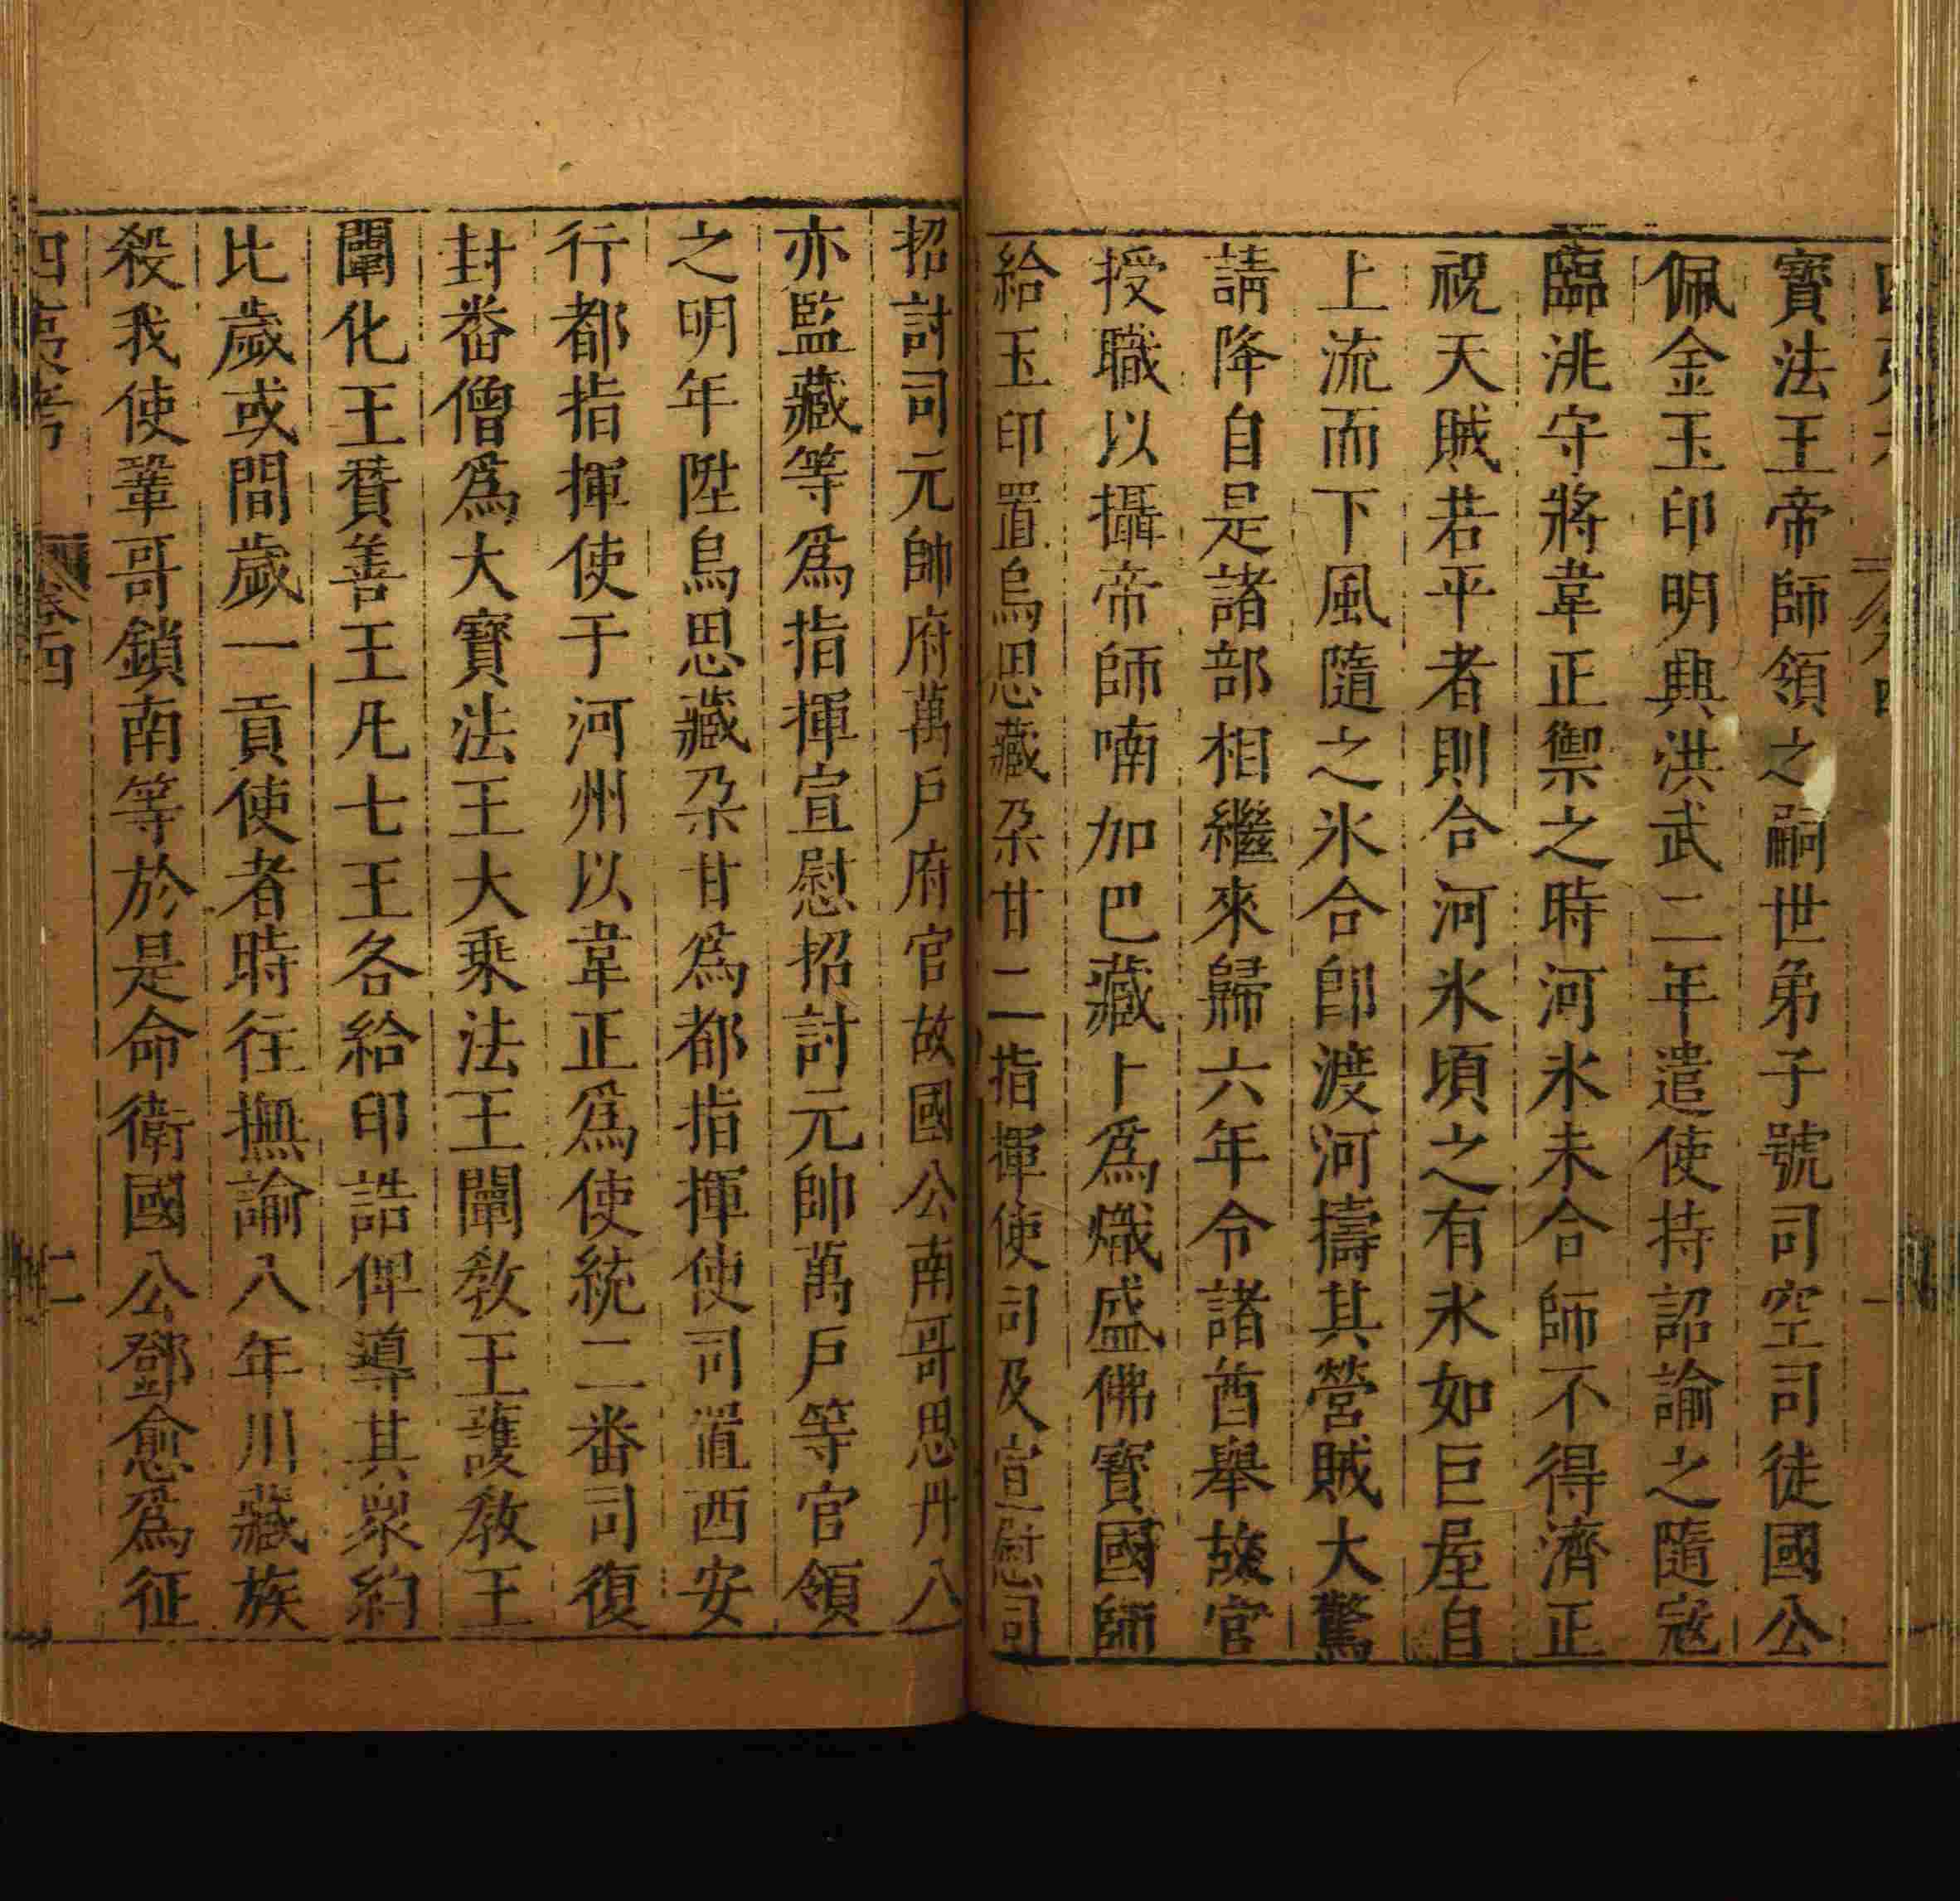 寶法王帝師領之嗣世弟子號司空司徒國公
佩金玉印明興洪武二年遣使持詔諭之隨寇
臨洮守將韋正禦之時河氷未合師不得濟正
祝天賊若平者則合河氷頃之有氷如巨屋自
上流而下風隨之氷合卽渡河擣其營賊大驚
請降自是諸部相繼來歸六年令諸酋舉故官
授職以攝帝師喃加巴藏卜爲熾盛佛寶國師
給玉印置烏思藏朶甘二指揮使司及宣慰司
招討司元帥府萬戶府官故國公南哥思丹八
亦監藏等爲指揮宣慰招討元帥萬戶等官領
之明年陞烏思藏朶甘爲都指揮使司置西安
行都指揮使于河州以韋正爲使統二番司復
封畨僧爲大寶法王大乗法王闡敎王護敎王
闡化王賛善王凡七王各給印誥俾導其衆約
比歲或間歲一貢使者時往撫諭八年川藏族
殺我使鞏哥鎖南等於是命衛國公鄧愈爲征
四夷考 卷四 二